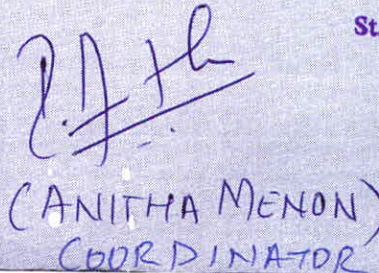 St
(ANITHA MENON)
COORDINATOR